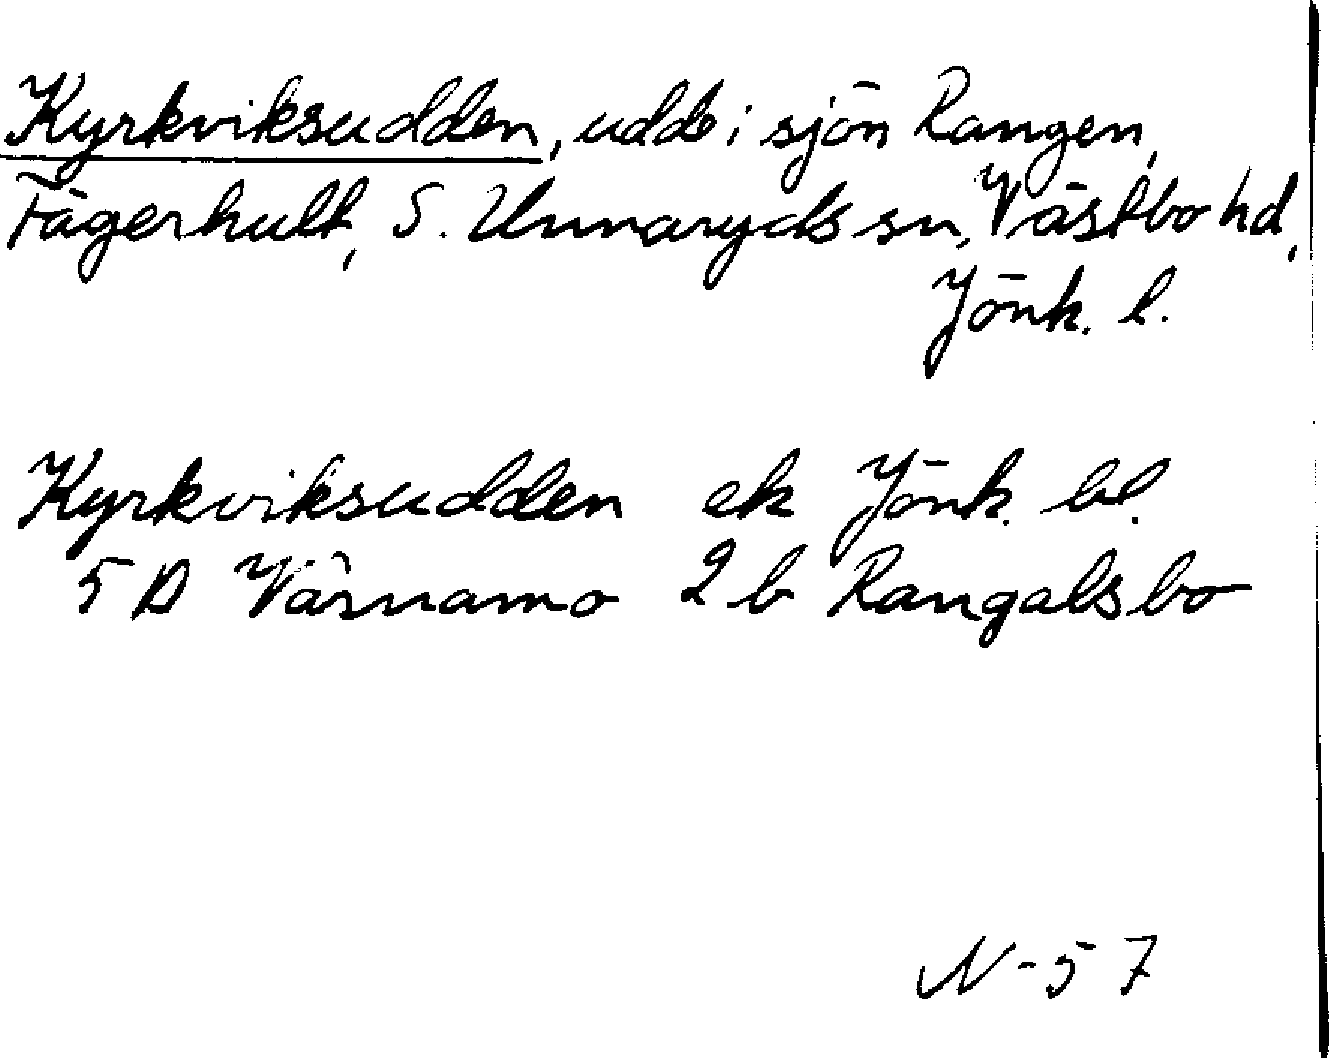 Kyrkviksudden, udde i sjön Rangen,
Fägerhult, S. Unnaryds sn, Västbo hd,
Jönk. l.
Kyrkviksudden ek Jönk. bl.
5 D Värnamo 2 b Rangalsbo
N-57